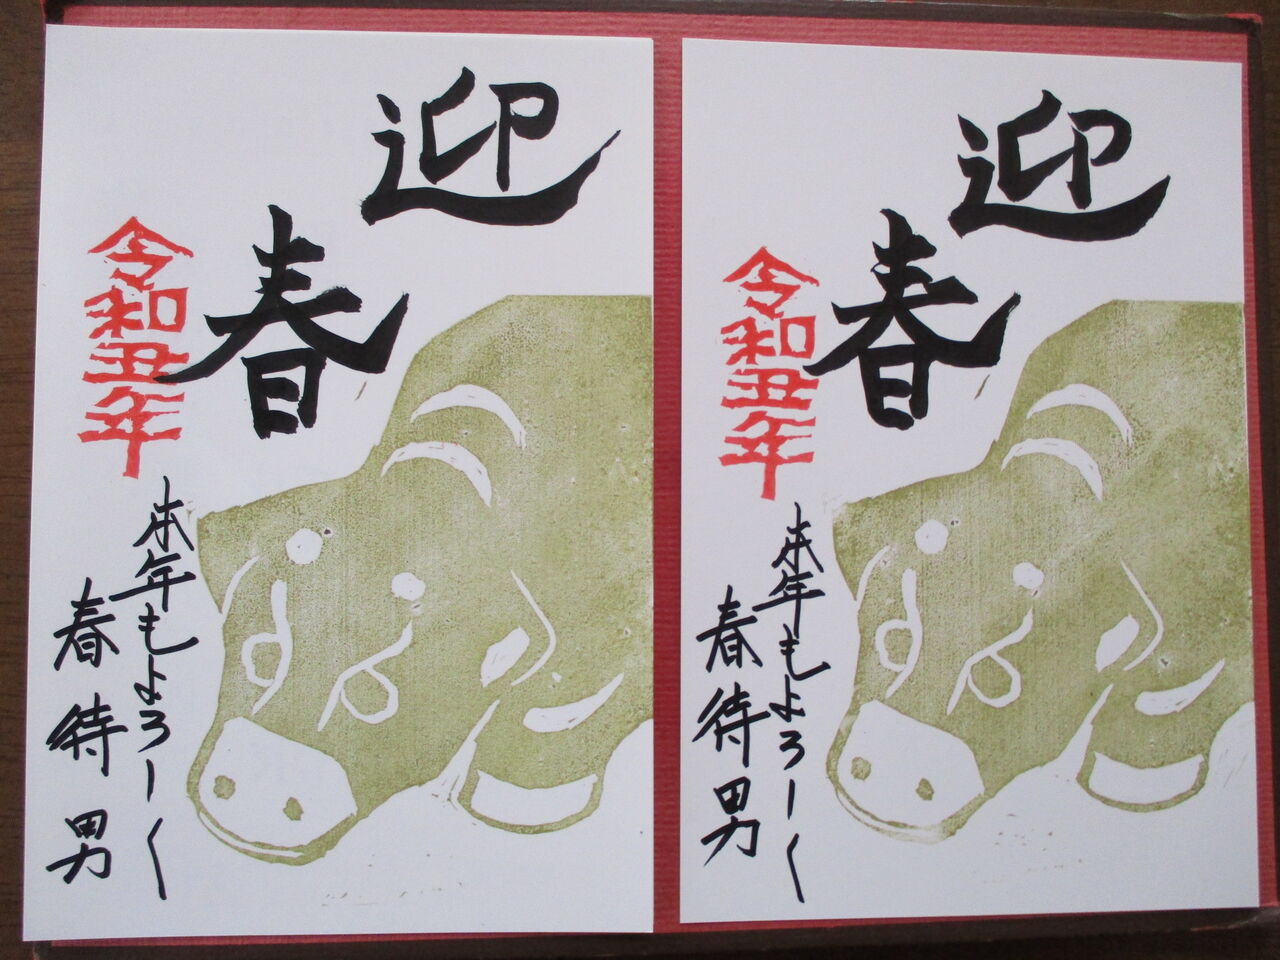 迎
春
令和丑年
本年もよろーく
春待男
迎
春
令和丑年
本年もよろーく
春待男